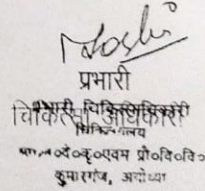 Joshi
प्रभारी
प्रभारी चिकित्साधिकारी
चिकित्सा अधिकारी
चिकित्सालय
न०दे०कृ०एवम प्रौ०वि०वि०
कुमारगंज, अयोध्या